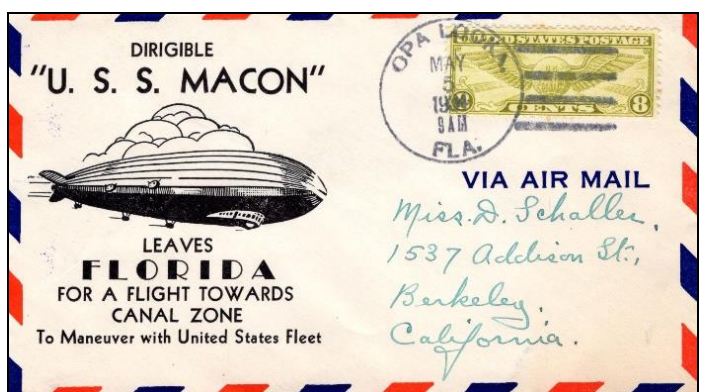 DIRIGIBLE
"U. S. S. MACON"
LEAVES
FLORIDA
FOR A FLIGHT TOWARDS
CANAL ZONE
To Maneuver with United States Fleet
OPA LOCKA
MAY
5
9 AM
FLA.
UNITED STATES POSTAGE
8 CENTS 8
VIA AIR MAIL
Miss. D. Schaller,
1537 Addison St.,
Berkeley,
California.